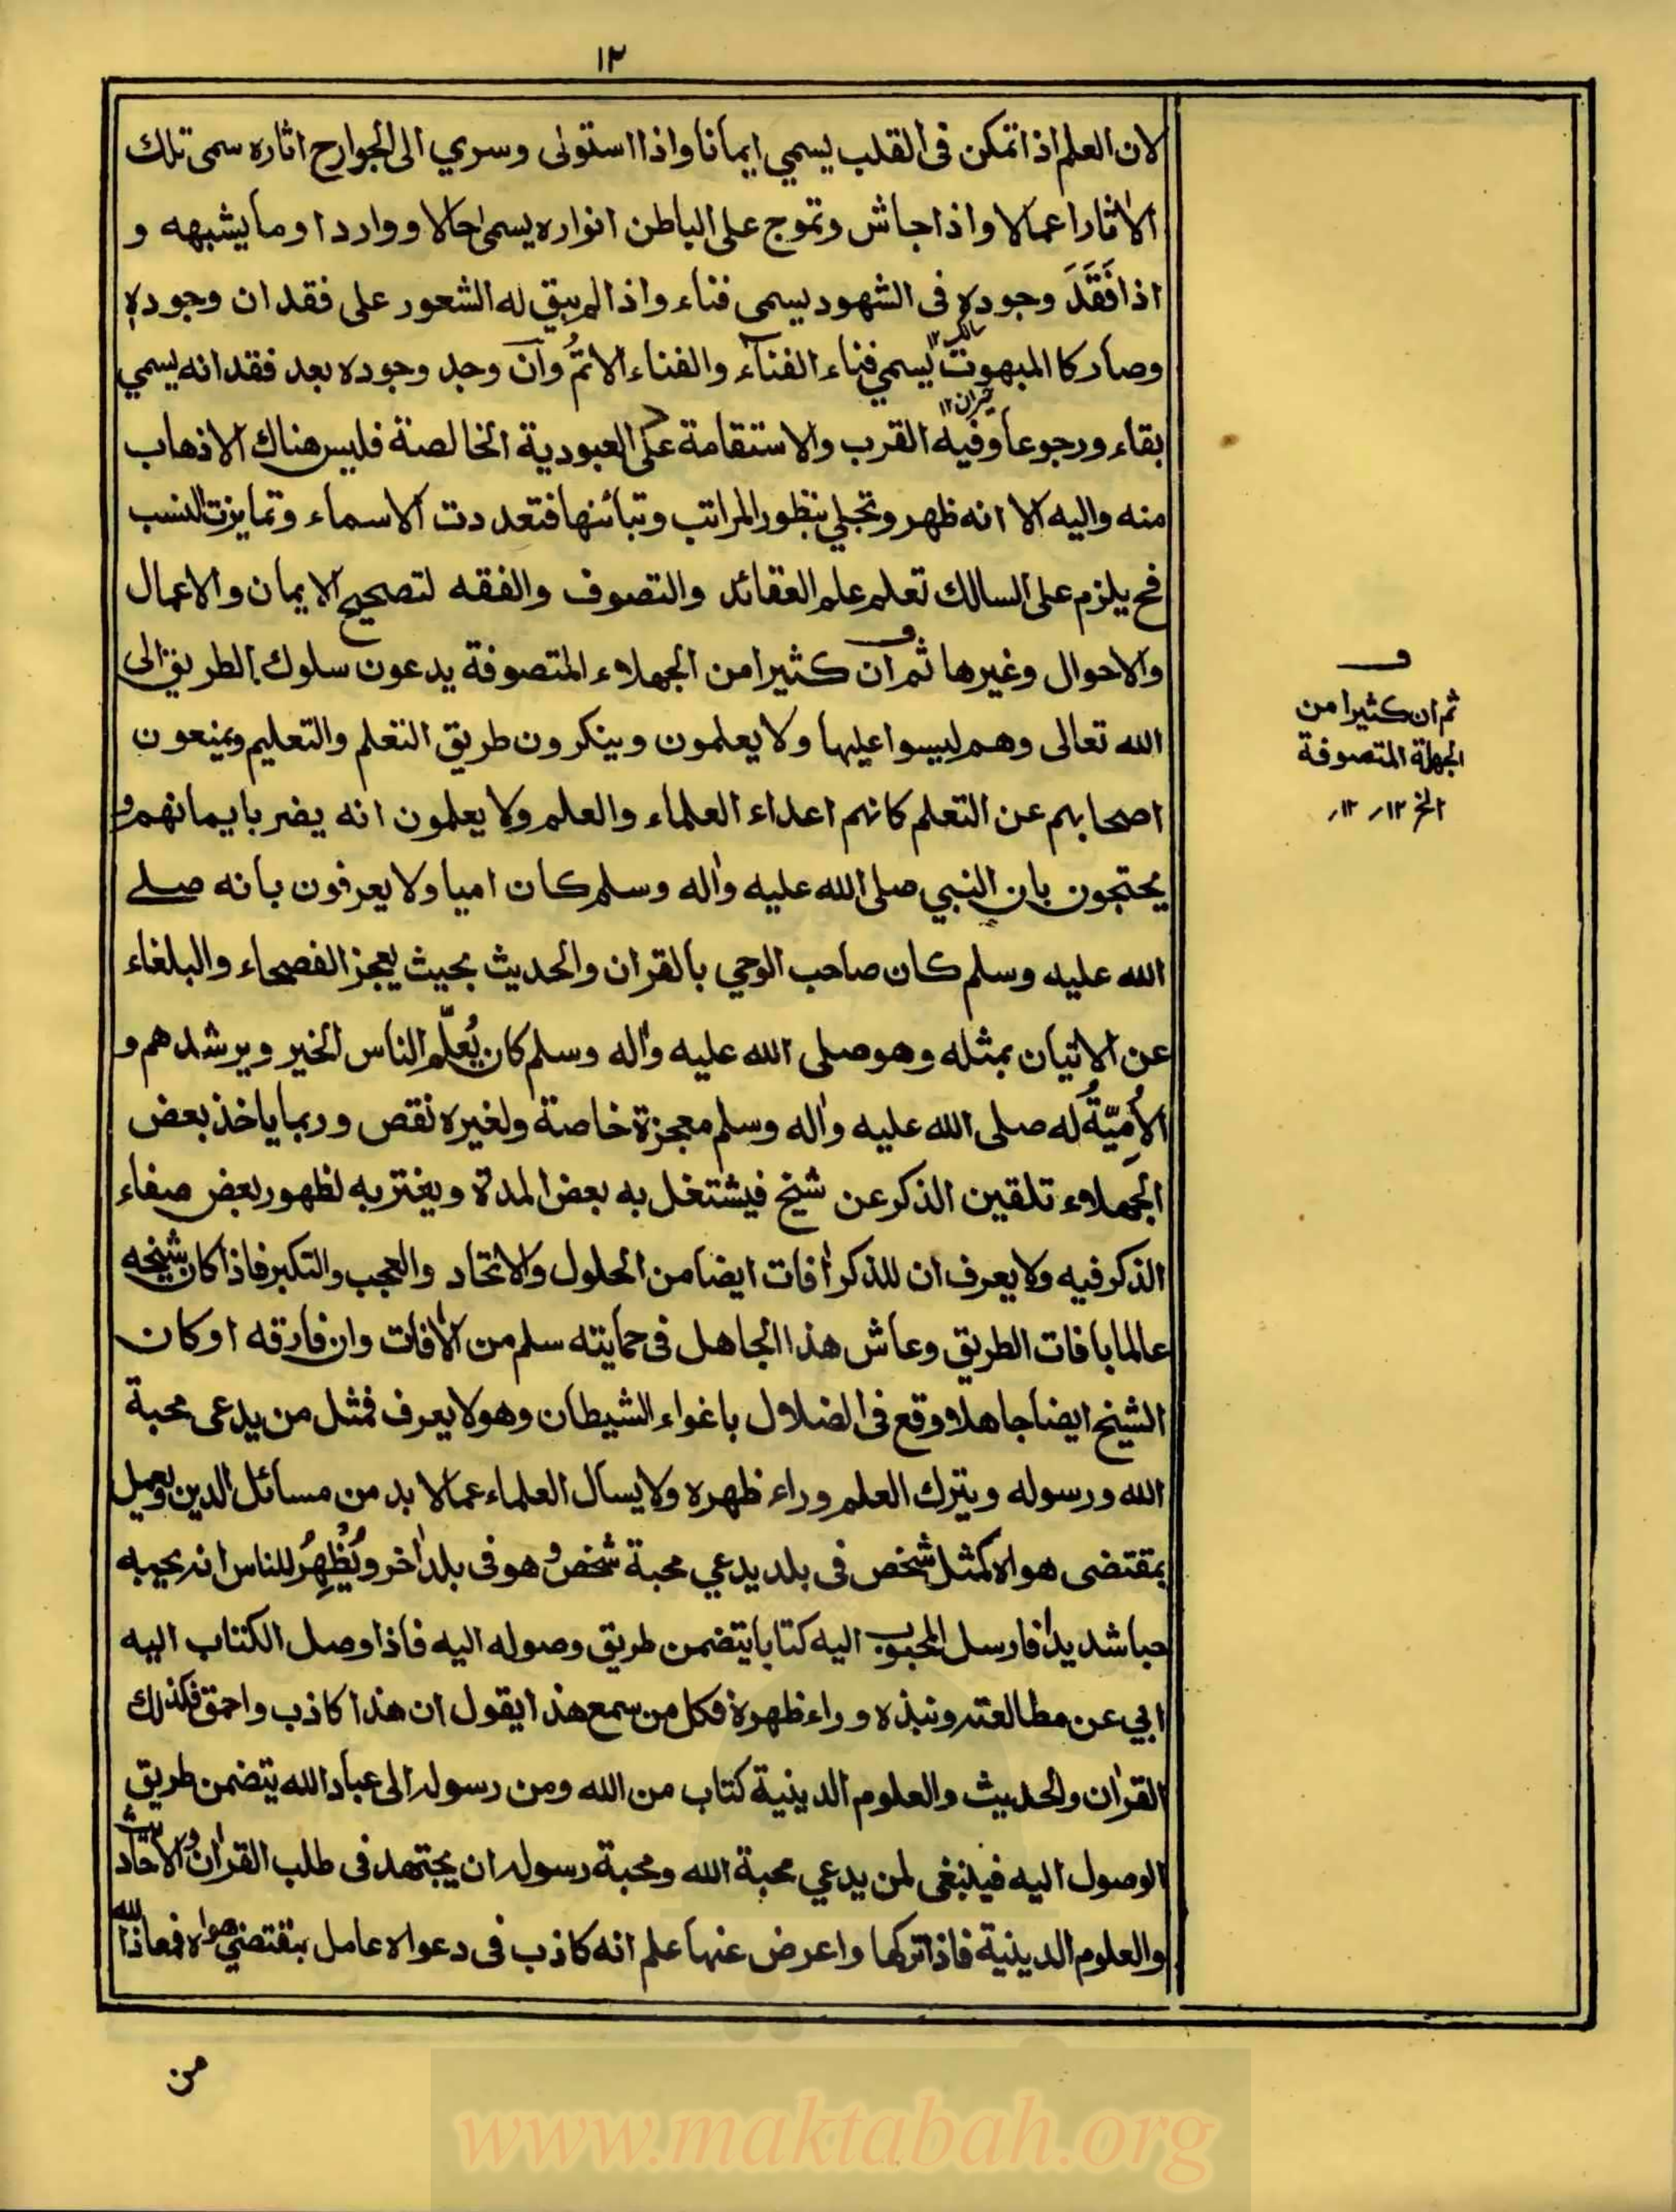 ١٢
لان العلم اذا تمكن فى القلب يسمي ايمانا واذا استولى وسري الى الجوارح اثاره سمى تلك
الاثار اعمالا واذا جاش وتموج على الباطن انواره يسمى حالا وواردا وما يشبهه و
اذا فَقَدَ وجوده فى الشهود يسمى فناء واذا لم يبق له الشعور على فقدان وجوده
وصار كالمبهوت يسمي فناء الفناء والفناء الاتمُّ وان وجد وجوده بعد فقدانه يسمي
بقاء ورجوعا وفيه القرب والاستقامة على العبودية الخالصة فليس هناك الا ذهاب
منه واليه الا انه ظهر وتجلي بتطور المراتب وتبائنها فتعددت الاسماء وتمايزت النسب
فح يلزم على السالك تعلم علم العقائد والتصوف والفقه لتصحيح الايمان والاعمال
والاحوال وغيرها ثم ان كثيرا من الجهلاء المتصوفة يدعون سلوك الطريق الى
الله تعالى وهم ليسوا عليها ولا يعلمون وينكرون طريق التعلم والتعليم ويمنعون
اصحابهم عن التعلم كانهم اعداء العلماء والعلم ولا يعلمون انه يضر بايمانهم و
يحتجون بان النبي صلى الله عليه واٰله وسلم كان اميا ولا يعرفون بانه صلے
الله عليه وسلم كان صاحب الوحي بالقران والحديث بحيث يعجز الفصحاء والبلغاء
عن الاتيان بمثله وهو صلى الله عليه واٰله وسلم كان يُعلّم الناس الخير ويرشدهم و
الاُمِيّةُ له صلى الله عليه واٰله وسلم معجزة خاصة ولغيره نقص وربما ياخذ بعض
الجهلاء تلقين الذكر عن شيخ فيشتغل به بعض المدة ويغتر به لظهور بعض صفاء
الذكر فيه ولا يعرف ان للذكر اٰفات ايضا من الحلول والاتحاد والعجب والتكبر فاذا كان شيخه
عالما بافات الطريق وعاش هذا الجاهل فى حمايته سلم من الاٰفات وان فارقه او كان
الشيخ ايضا جاهلا ووقع فى الضلال باغواء الشيطان وهو لا يعرف فمثل من يدعى محبة
الله ورسوله ويترك العلم وراء ظهره ولا يسأل العلماء عما لا بد من مسائل الدين ويعمل
بمقتضى هواه كمثل شخص فى بلد يدعي محبة شخص و هو فى بلد اٰخر ويُظْهِرُ للناس انه يحبه
حبا شديدا فارسل المحبوب اليه كتابا يتضمن طريق وصوله اليه فاذا وصل الكتاب اليه
ابي عن مطالعته ونبذه وراء ظهره فكل من سمع هذا يقول ان هذا كاذب واحمق فكذلك
القراٰن والحديث والعلوم الدينية كتاب من الله ومن رسوله الى عباد الله يتضمن طريق
الوصول اليه فينبغى لمن يدعي محبة الله ومحبة رسوله ان يجتهد فى طلب القراٰن والاحاديث
والعلوم الدينية فاذا تركها واعرض عنها علم انه كاذب فى دعواه عامل بمقتضى هواه فمعاذ الله
من
سالک ١٢
حیران ١٢
ف
ثم ان كثيرا من
الجهلة المتصوفة
الخ ١٢ ؍ ١٢ ؍
www.maktabah.org